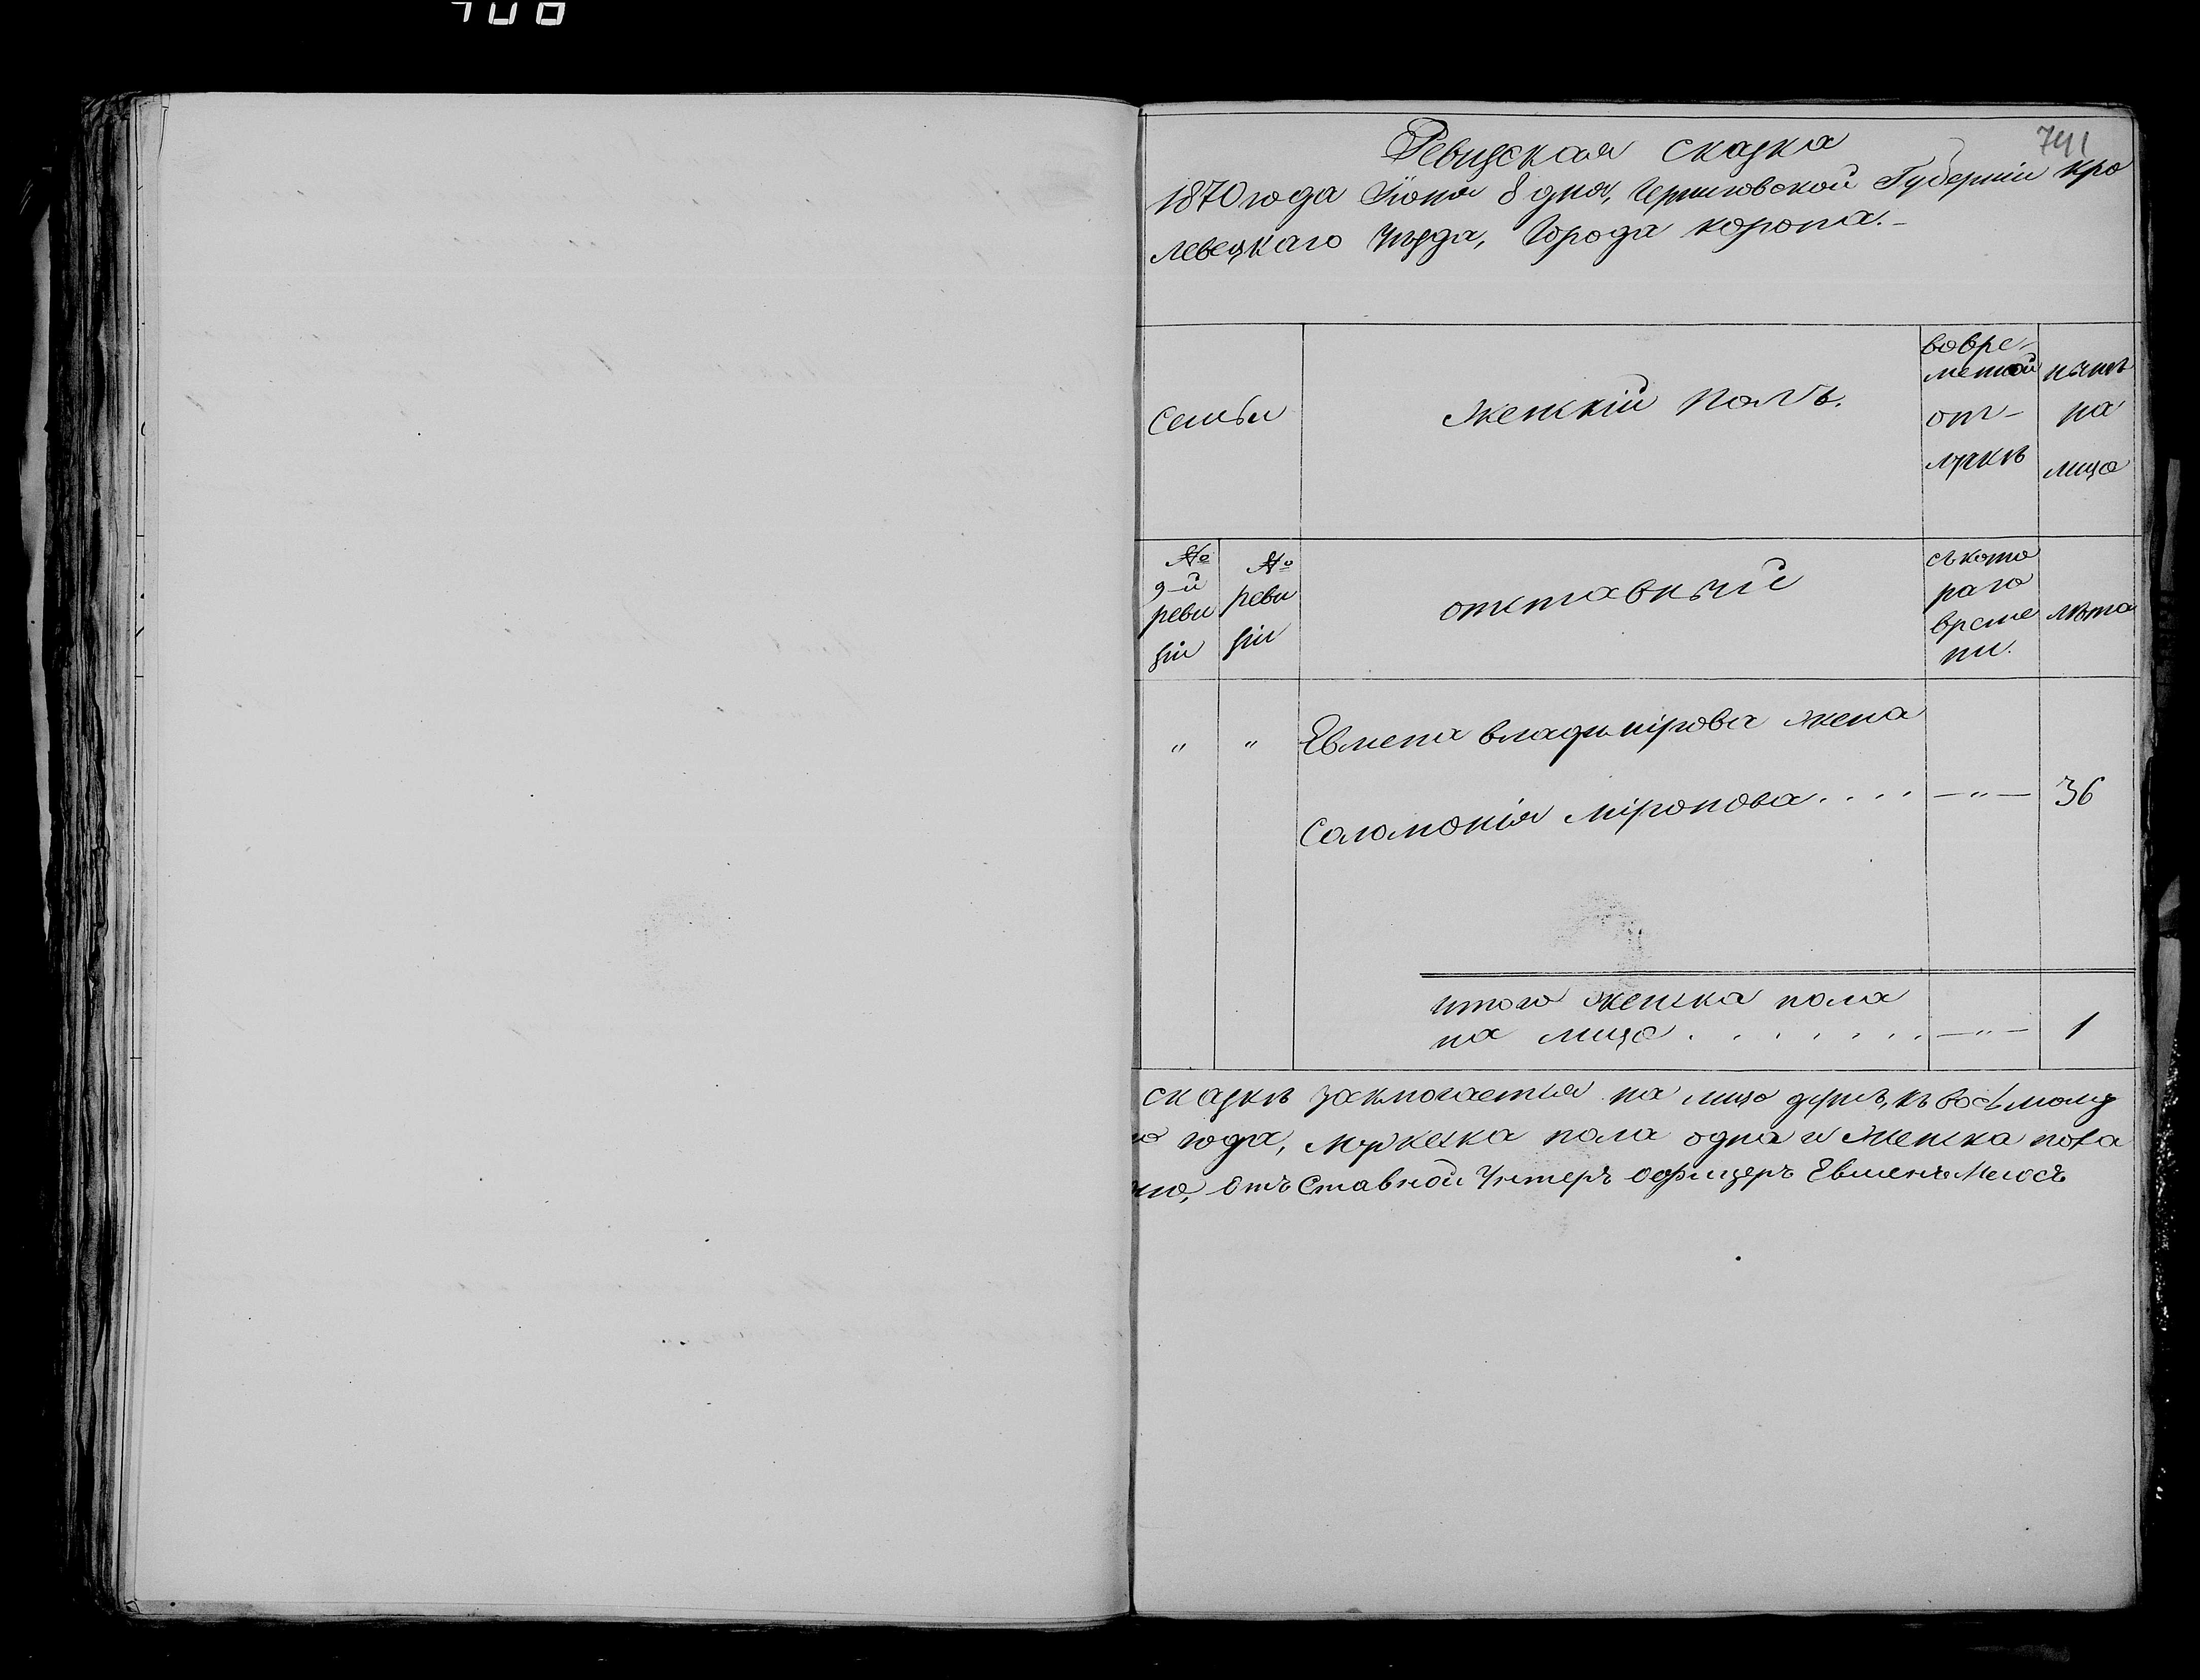 741
Ревизская сказка
1870 года Іюня 8 дня, Черниговской Губерніи Кро
левецкаго Уѣзда, Города Коропа.-
Семьи
Женскій полъ.
вовре-
менной
отъ-
лучкѣ
нынѣ
на
лицо
№
9-й
реви
зіи
№
реви
зіи
отставный
съ кото
раго
време
ни.
лѣта
" " Евмена Владимірова жена
Соломонія Міронова . . . . —"— 36
Итого женска пола
на лицо . . . . . . . —"— 1
сказкѣ заключается на лицо душъ, къ восьмому
года, мужеска пола одна и женска пола
Отъ Ставной Унтеръ Оофицеръ Евменъ